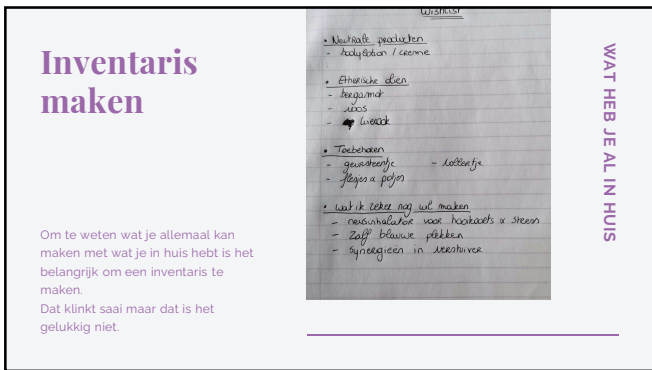 Inventaris
maken
Om te weten wat je allemaal kan
maken met wat je in huis hebt is het
belangrijk om een inventaris te
maken.
Dat klinkt saai maar dat is het
gelukkig niet.
Wishlist
• Neutrale producten
- bodylotion / creme
• Etherische oliën
- bergamot
- roos
- wierook
• Toebehoren
- geursteentje - rollertje
- flesjes & potjes
• wat ik zeker nog wil maken
- neusinhalator voor hooikoorts & stress
- Zalf blauwe plekken
- synergieën in verstuiver
WAT HEB JE AL IN HUIS